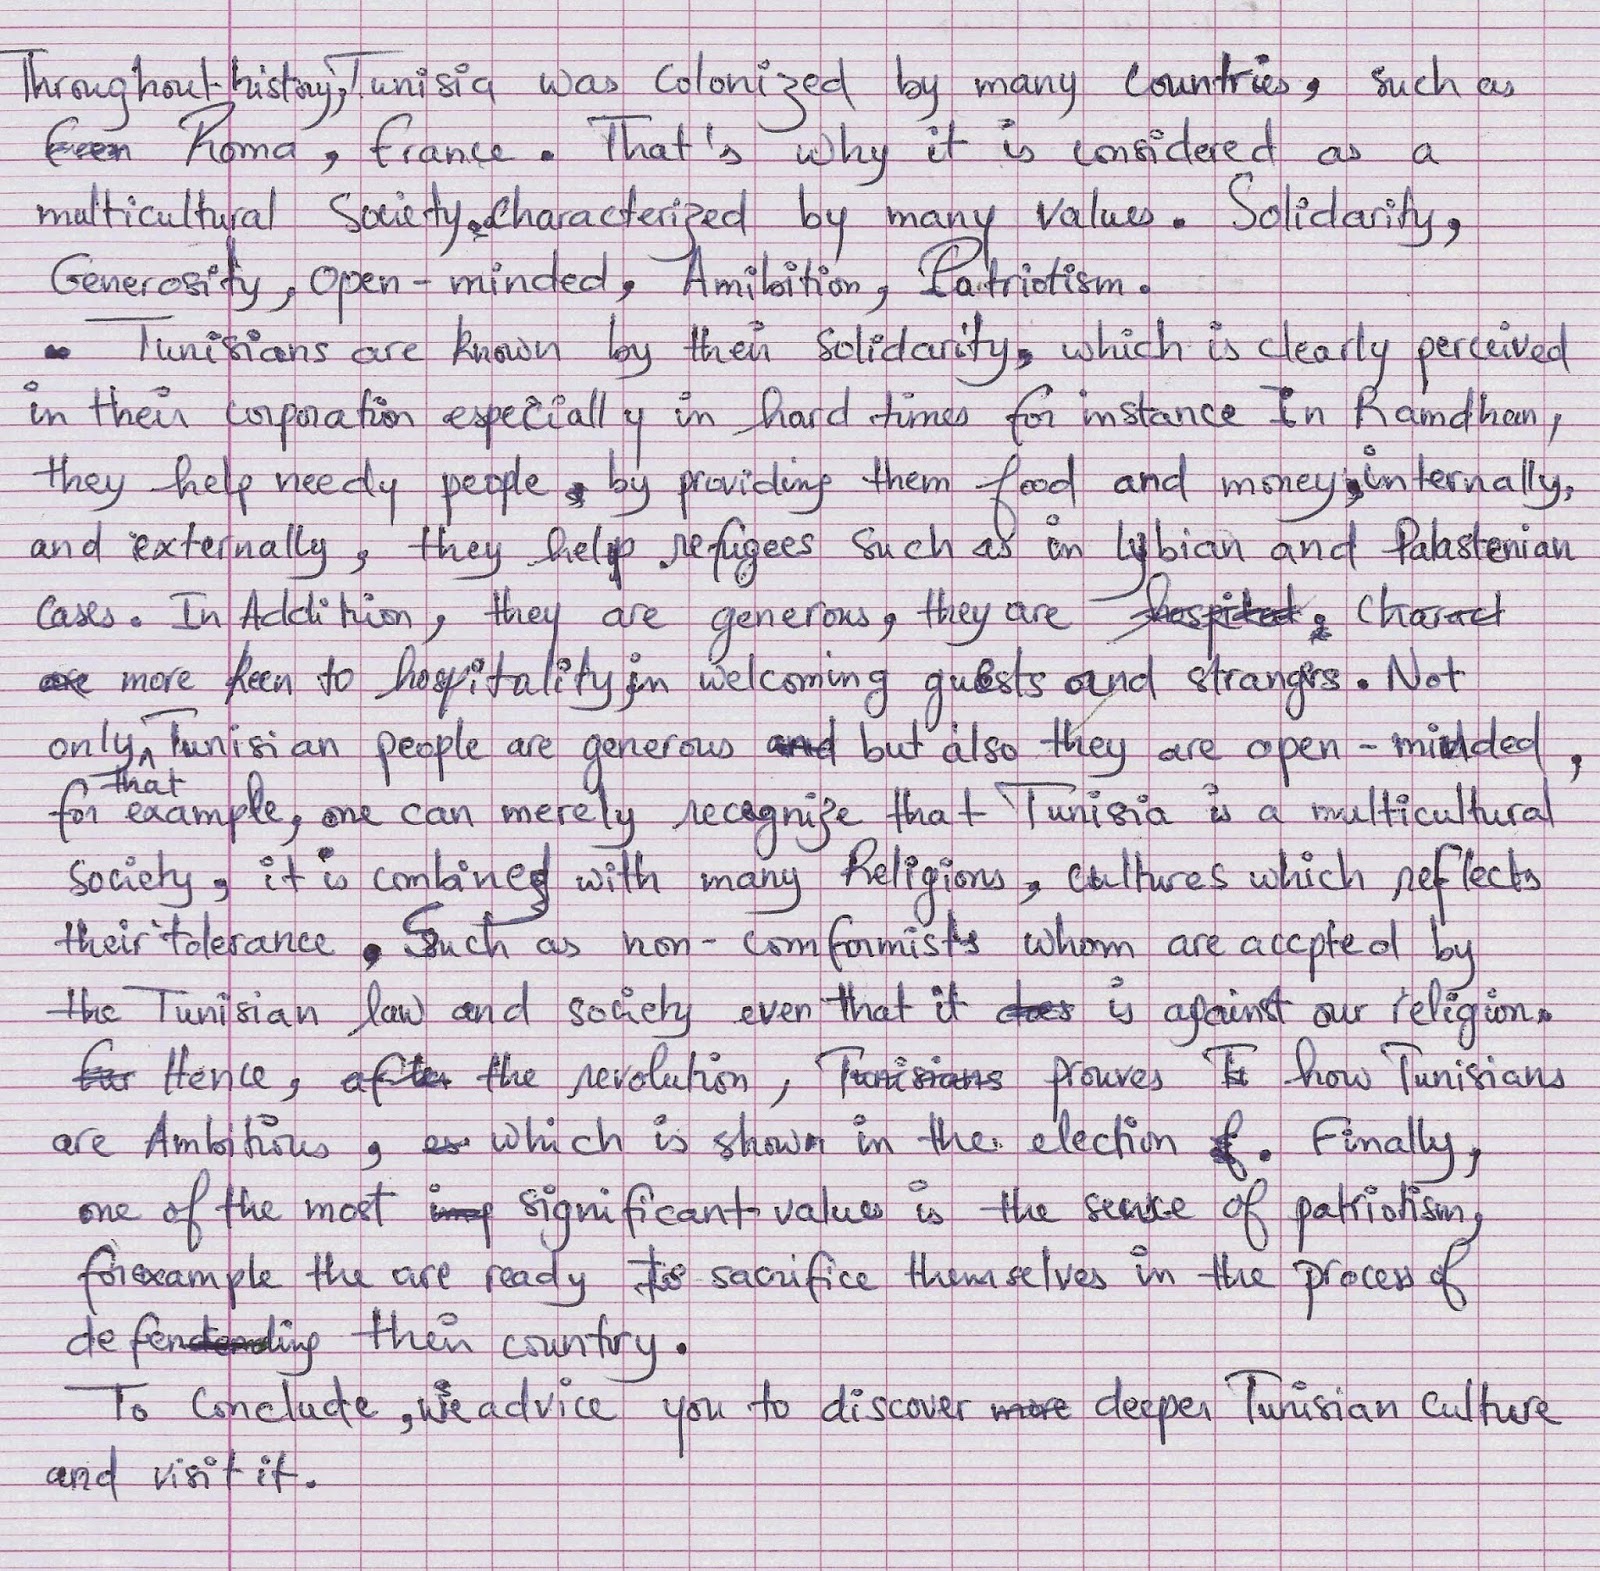 Throughout history, Tunisia was colonized by many countries, such as
Roma, france. That's why it is considered as a
multicultural society characterized by many values. Solidarity,
Generosity, open-minded, Amibition, Patriotism.
Tunisians are known by their solidarity, which is clearly perceived
in their corporation especially in hard times for instance In Ramdhan,
they help needy people, by providing them food and money, internally,
and externally, they help refugees such as in lybian and Palastenian
cases. In Addition, they are generous, they are hospited, charact
are more keen to hospitality in welcoming guests and strangrs. Not
only Tunisian people are generous and but also they are open-minded,
that
for example, one can merely recognize that Tunisia is a multicultural
society, it is combined with many Religions, cultures which reflects
their tolerance, Such as non-comformists whom are accpted by
the Tunisian law and society even that it does is against our religion.
for Hence, after the revolution, Tunisians prouves how Tunisians
are Ambitious, which is shown in the election. Finally,
one of the most imp significant values is the sense of patriotism,
for example the are ready to sacrifice themselves in the process of
defending their country.
To Conclude, we advice you to discover more deeper Tunisian culture
and visit it.